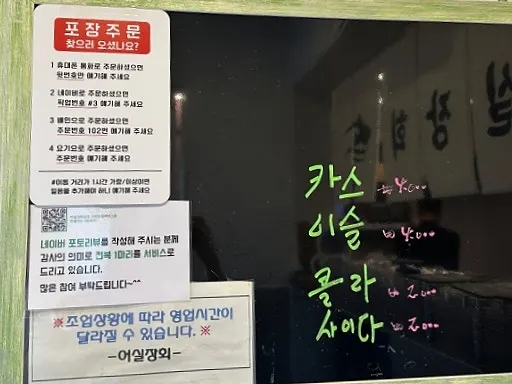 포장주문
찾으러 오셨나요?
1 휴대폰 통화로 주문하셨으면
뒷번호만 얘기해 주세요
2 네이버로 주문하셨으면
픽업번호 #3 얘기해 주세요
3 배민으로 주문하셨으면
주문번호 102번 얘기해 주세요
4 요기요로 주문하셨으면
주문번호 얘기해 주세요
#이동 거리가 1시간 가량/이상이면
얼음을 추가해야 하니 얘기해 주세요
네이버 포토리뷰를 작성해 주시는 분께
감사의 의미로 전복 1마리를 서비스로
드리고 있습니다.
많은 참여 부탁드립니다~^^
※조업상황에 따라 영업시간이
달라질 수 있습니다.※
-어실장회-
카스 ₩4.000
이슬 ₩4.000
콜라 ₩2.000
사이다 ₩2.000